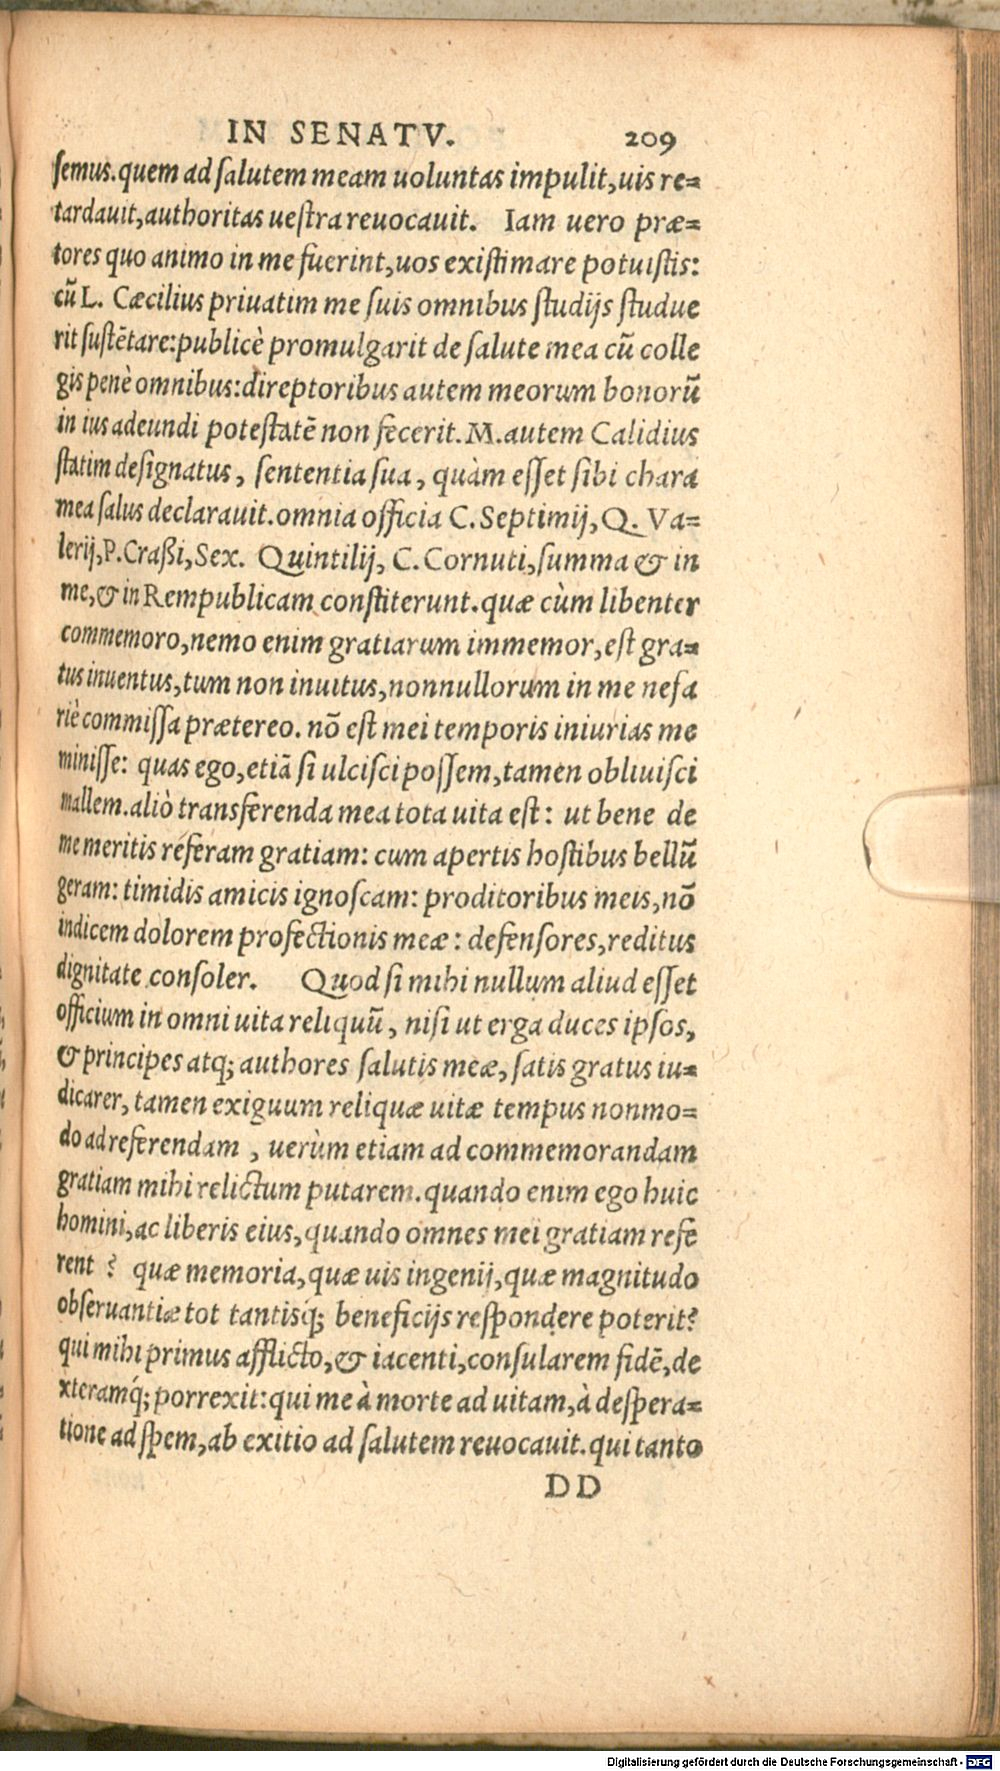 IN SENATV. 209
semus.quem ad salutem meam uoluntas impulit,uis re=
tardauit,authoritas uestra reuocauit. Iam uero præ=
tores quo animo in me fuerint,uos existimare potuistis:
cũ L. Cæcilius priuatim me suis omnibus studijs studue
rit sustẽtare:publicè promulgarit de salute mea cũ colle
gis penè omnibus:direptoribus autem meorum bonorũ
in ius adeundi potestatẽ non fecerit. M.autem Calidius
statim designatus, sententia sua, quàm esset sibi chara
mea salus declarauit.omnia officia C.Septimij,Q. Va=
lerij,P.Craßi,Sex. Quintilij, C.Cornuti,summa & in
me,& in Rempublicam constiterunt.quæ cùm libenter
commemoro,nemo enim gratiarum immemor,est gra=
tus inuentus,tum non inuitus,nonnullorum in me nefa
riè commissa prætereo. nõ est mei temporis iniurias me
minisse: quas ego,etiã si ulcisci possem,tamen obliuisci
mallem.aliò transferenda mea tota uita est: ut bene de
me meritis referam gratiam: cum apertis hostibus bellũ
geram: timidis amicis ignoscam: proditoribus meis,nõ
indicem dolorem profectionis meæ: defensores,reditus
dignitate consoler. Quod si mihi nullum aliud esset
officium in omni uita reliquũ, nisi ut erga duces ipsos,
& principes atq; authores salutis meæ, satis gratus iu=
dicarer, tamen exiguum reliquæ uitæ tempus nonmo=
do ad referendam, uerùm etiam ad commemorandam
gratiam mihi relictum putarem.quando enim ego huic
homini,ac liberis eius,quando omnes mei gratiam refe
rent? quæ memoria,quæ uis ingenij,quæ magnitudo
obseruantiæ tot tantisq́; beneficijs respondere poterit?
qui mihi primus afflicto,& iacenti,consularem fidẽ,de
xteramq́; porrexit:qui me à morte ad uitam,à despera=
tione ad spem,ab exitio ad salutem reuocauit.qui tanto
DD
Digitalisierung gefördert durch die Deutsche Forschungsgemeinschaft - DFG